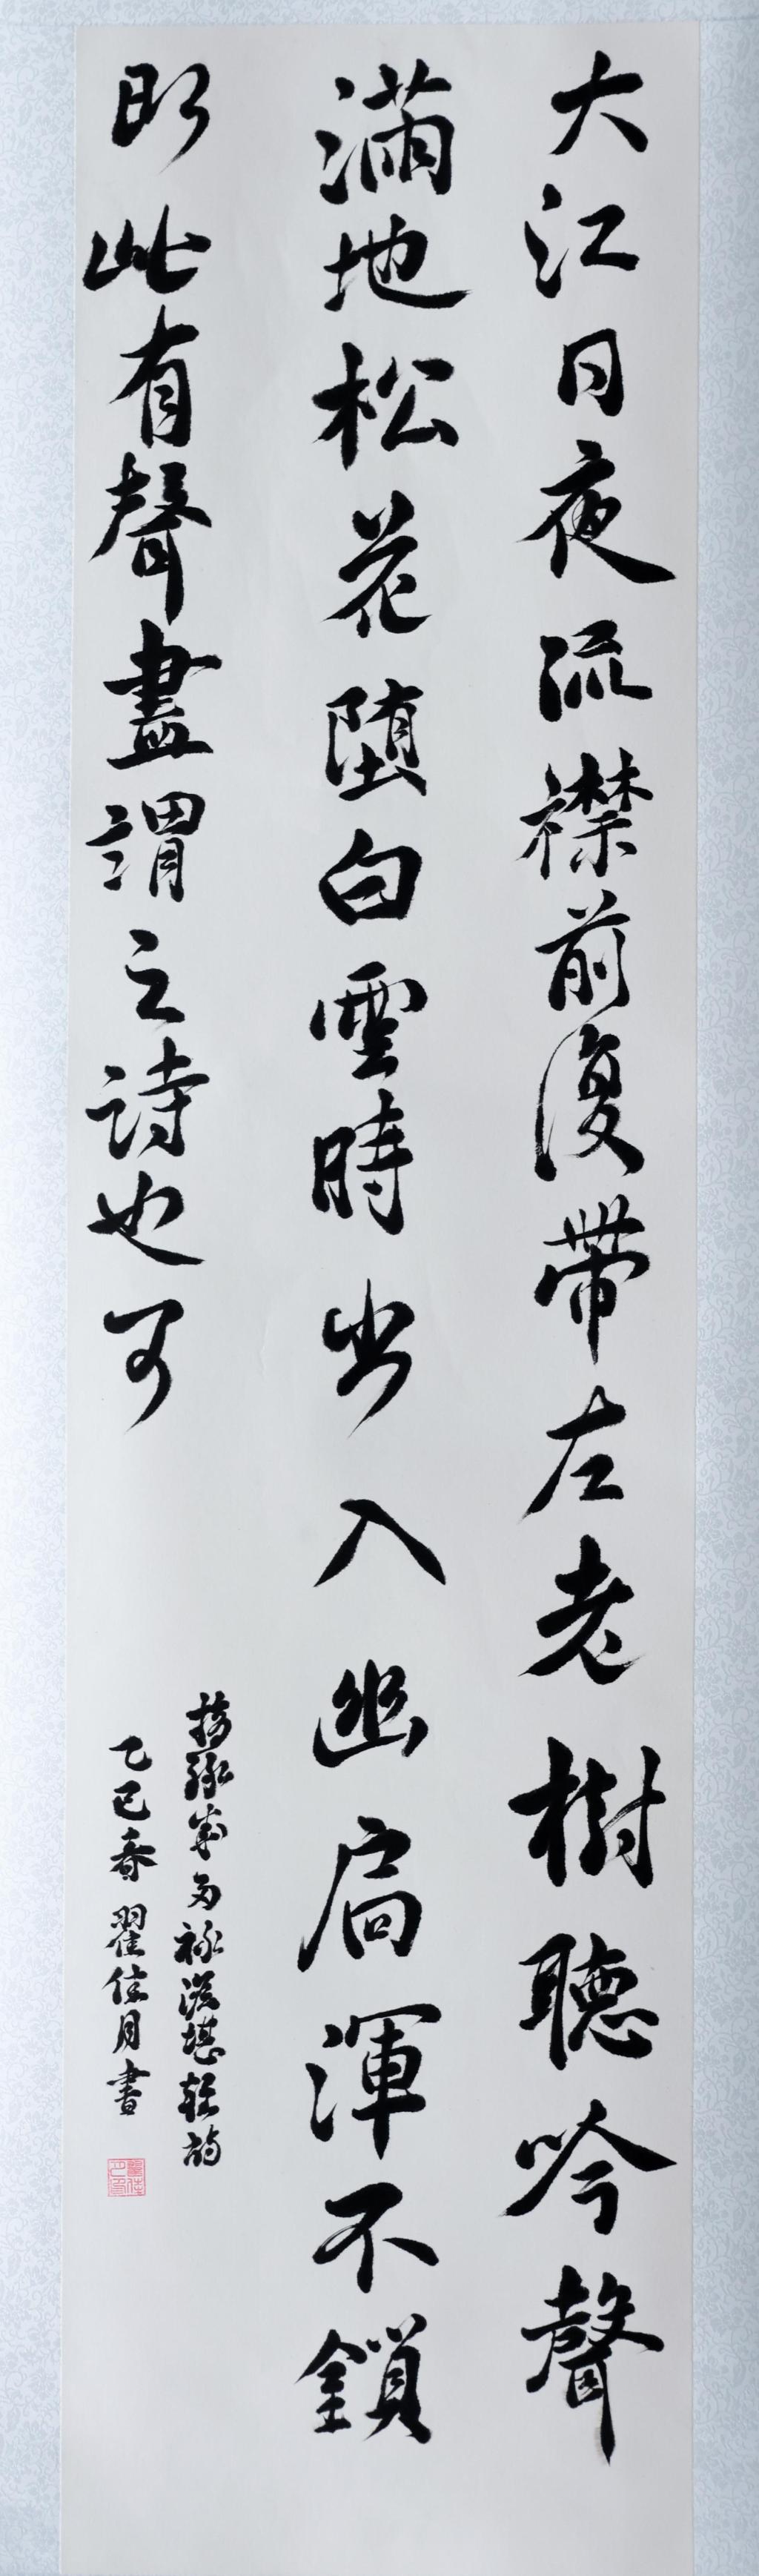 大江日夜流襟前復帶左老樹聽吟聲
滿地松花堕白雲時出入幽扃渾不鎖
即此有聲畫謂之詩也可
乙巳春翟佳月書